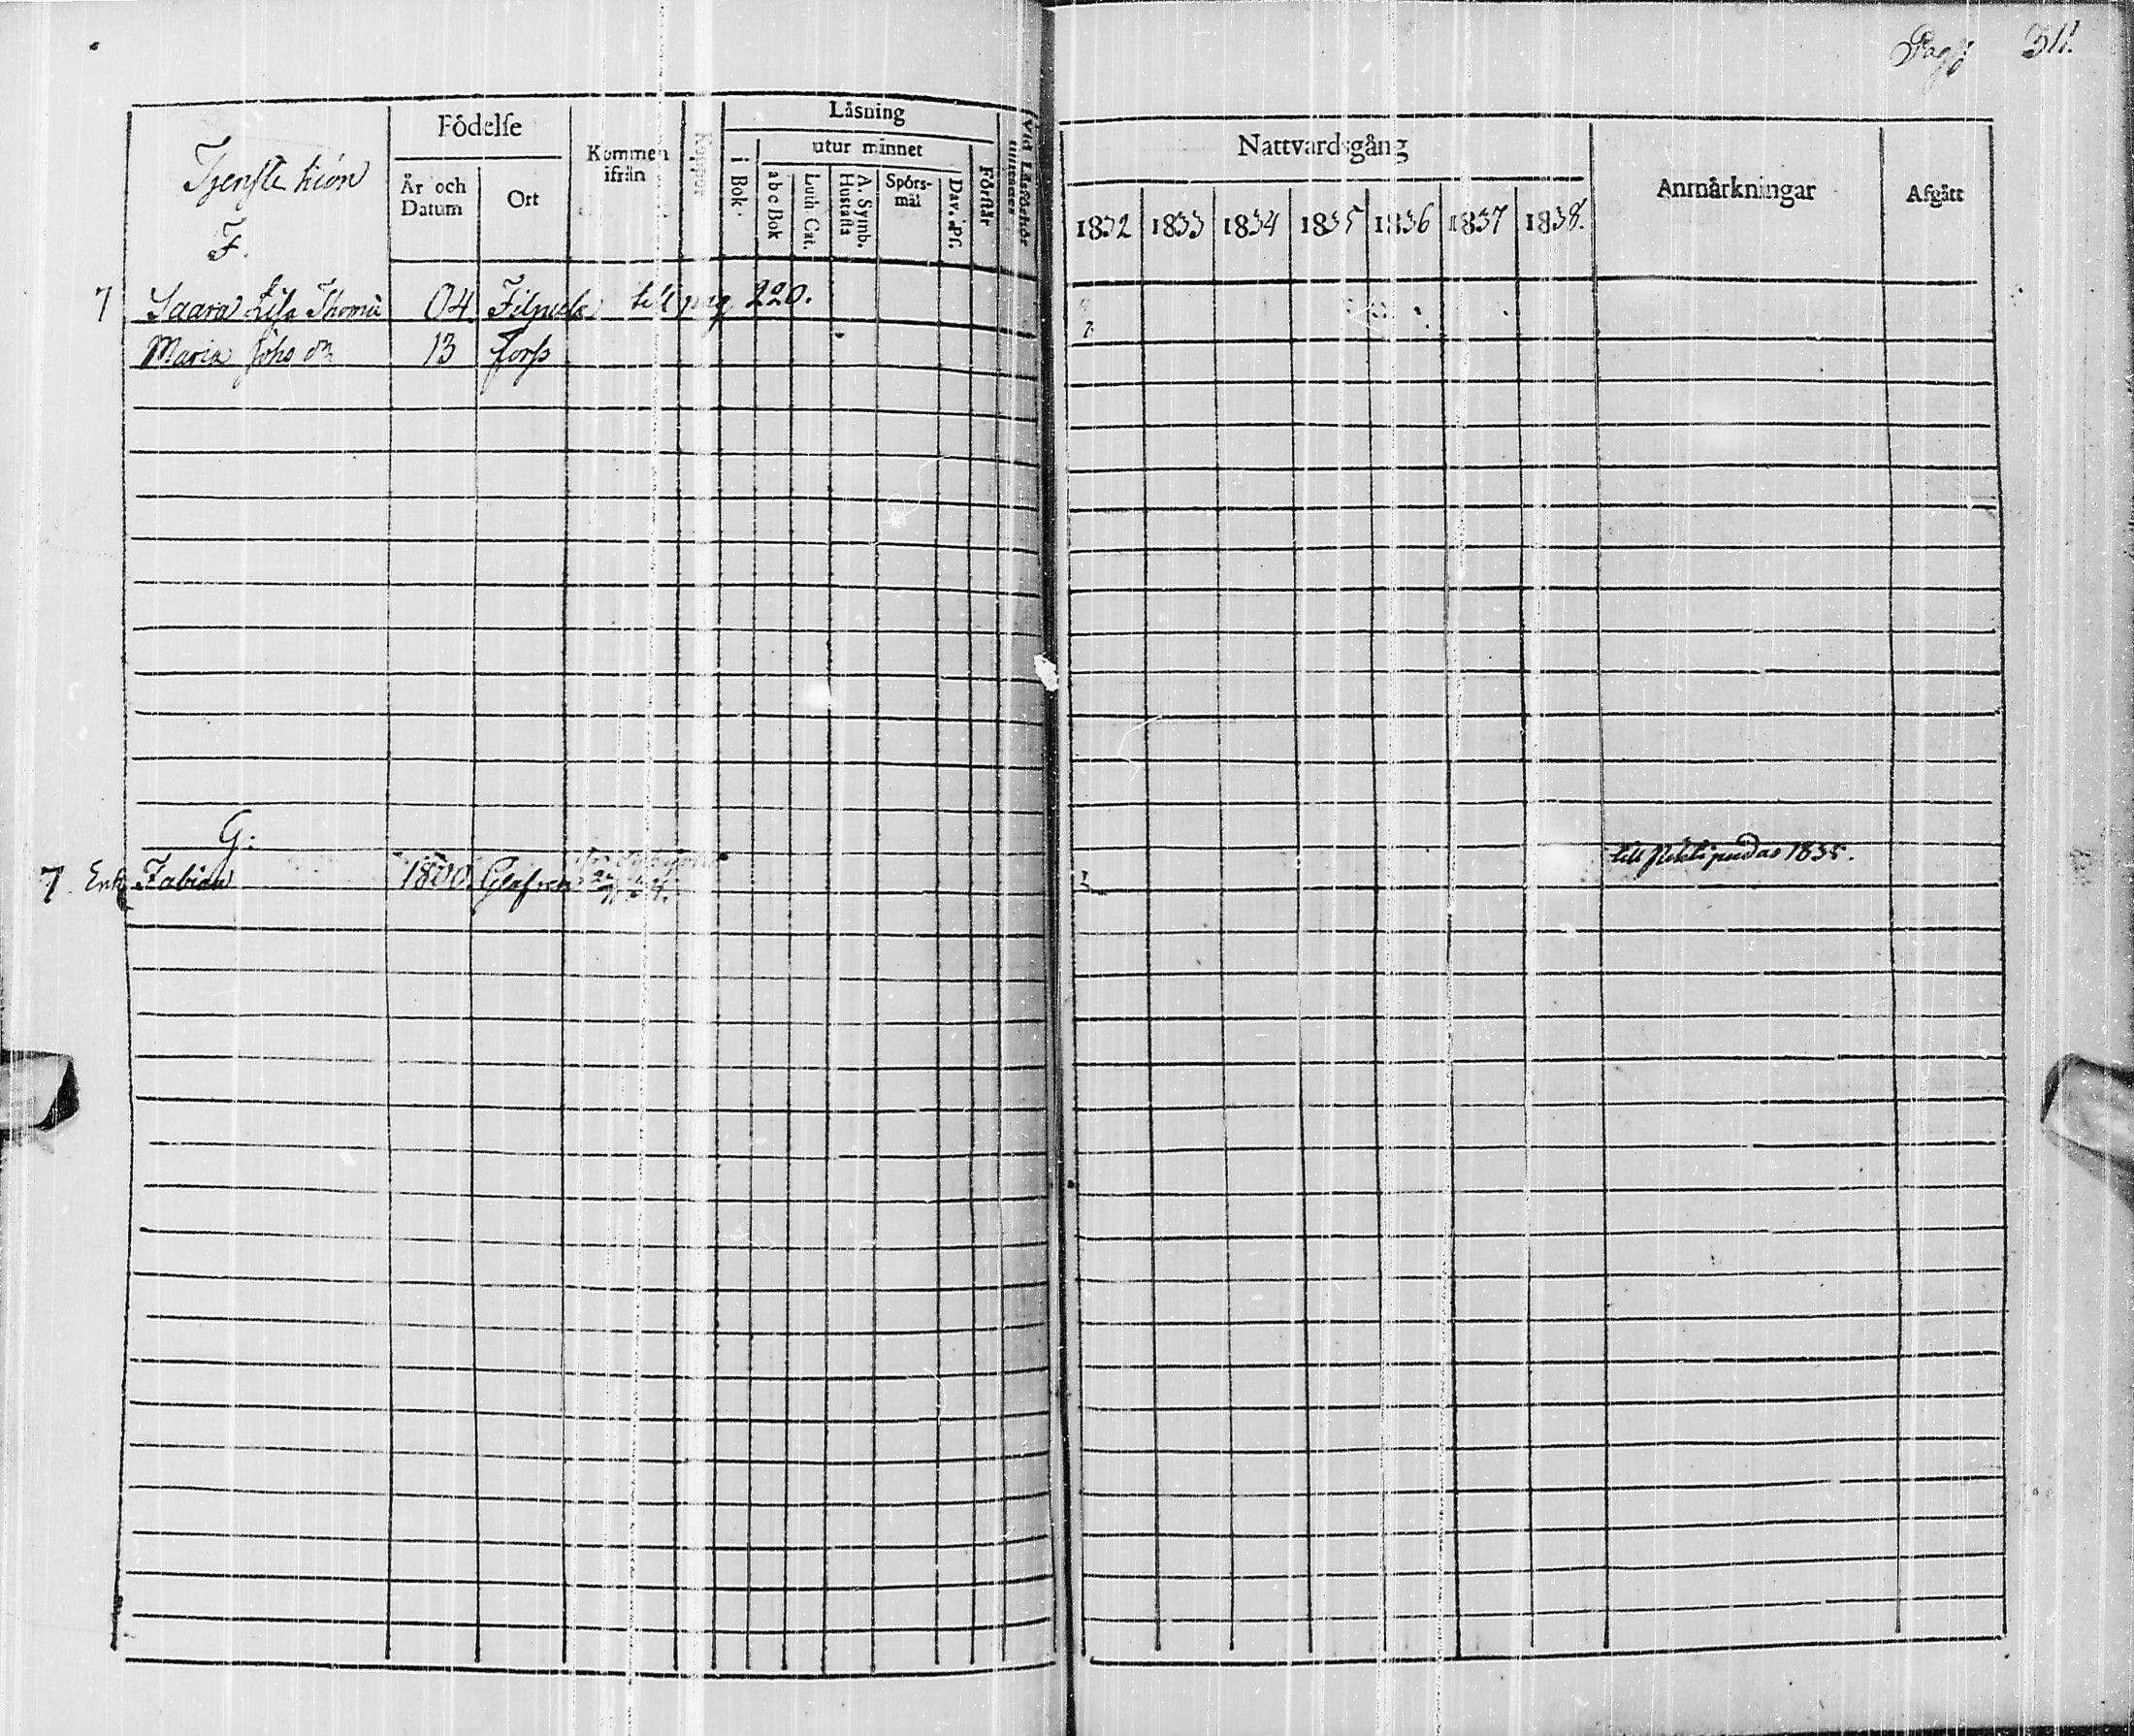 Pag 311.
Tjenste hion
F.
Födelse
År och Datum
Ort
Kommen ifrån
Koppor
Läsning
i Bok
utur minnet
abc Bok
Luth. Cat.
A. Symb. Hustafla
Spörs-mål
Dav. Ps.
Förstår
Vid Läsförhör
Nattvardsgång
1832 1833 1834 1835 1836 1837 1838.
Anmärkningar
Afgått
7 Saara Lisa Thomæ 04 Filpula till pag 220.
Maria Johs dr 13 Forss
G:
7 Enk Fabian 1800. 3
till 1835.